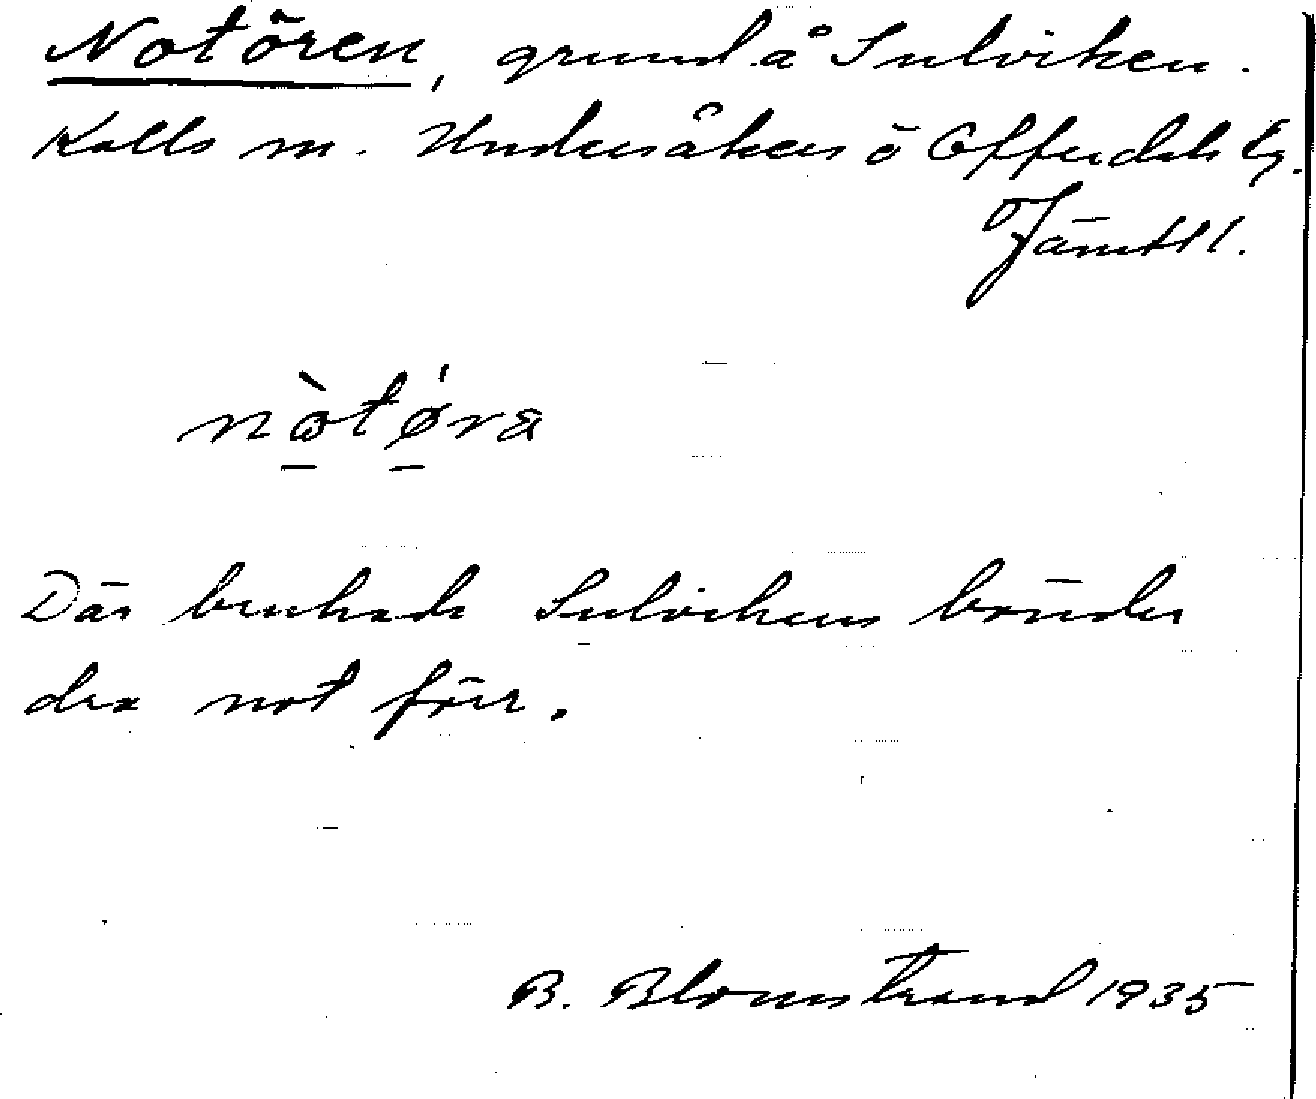 Notören, grund å Sulviken.
Kalls sn. Undersåkers o Offerdals tg.
Jämtl.
nòtǿra
Där brukade Sulvikens bönder
dra not förr.
B. Blomstrand 1935